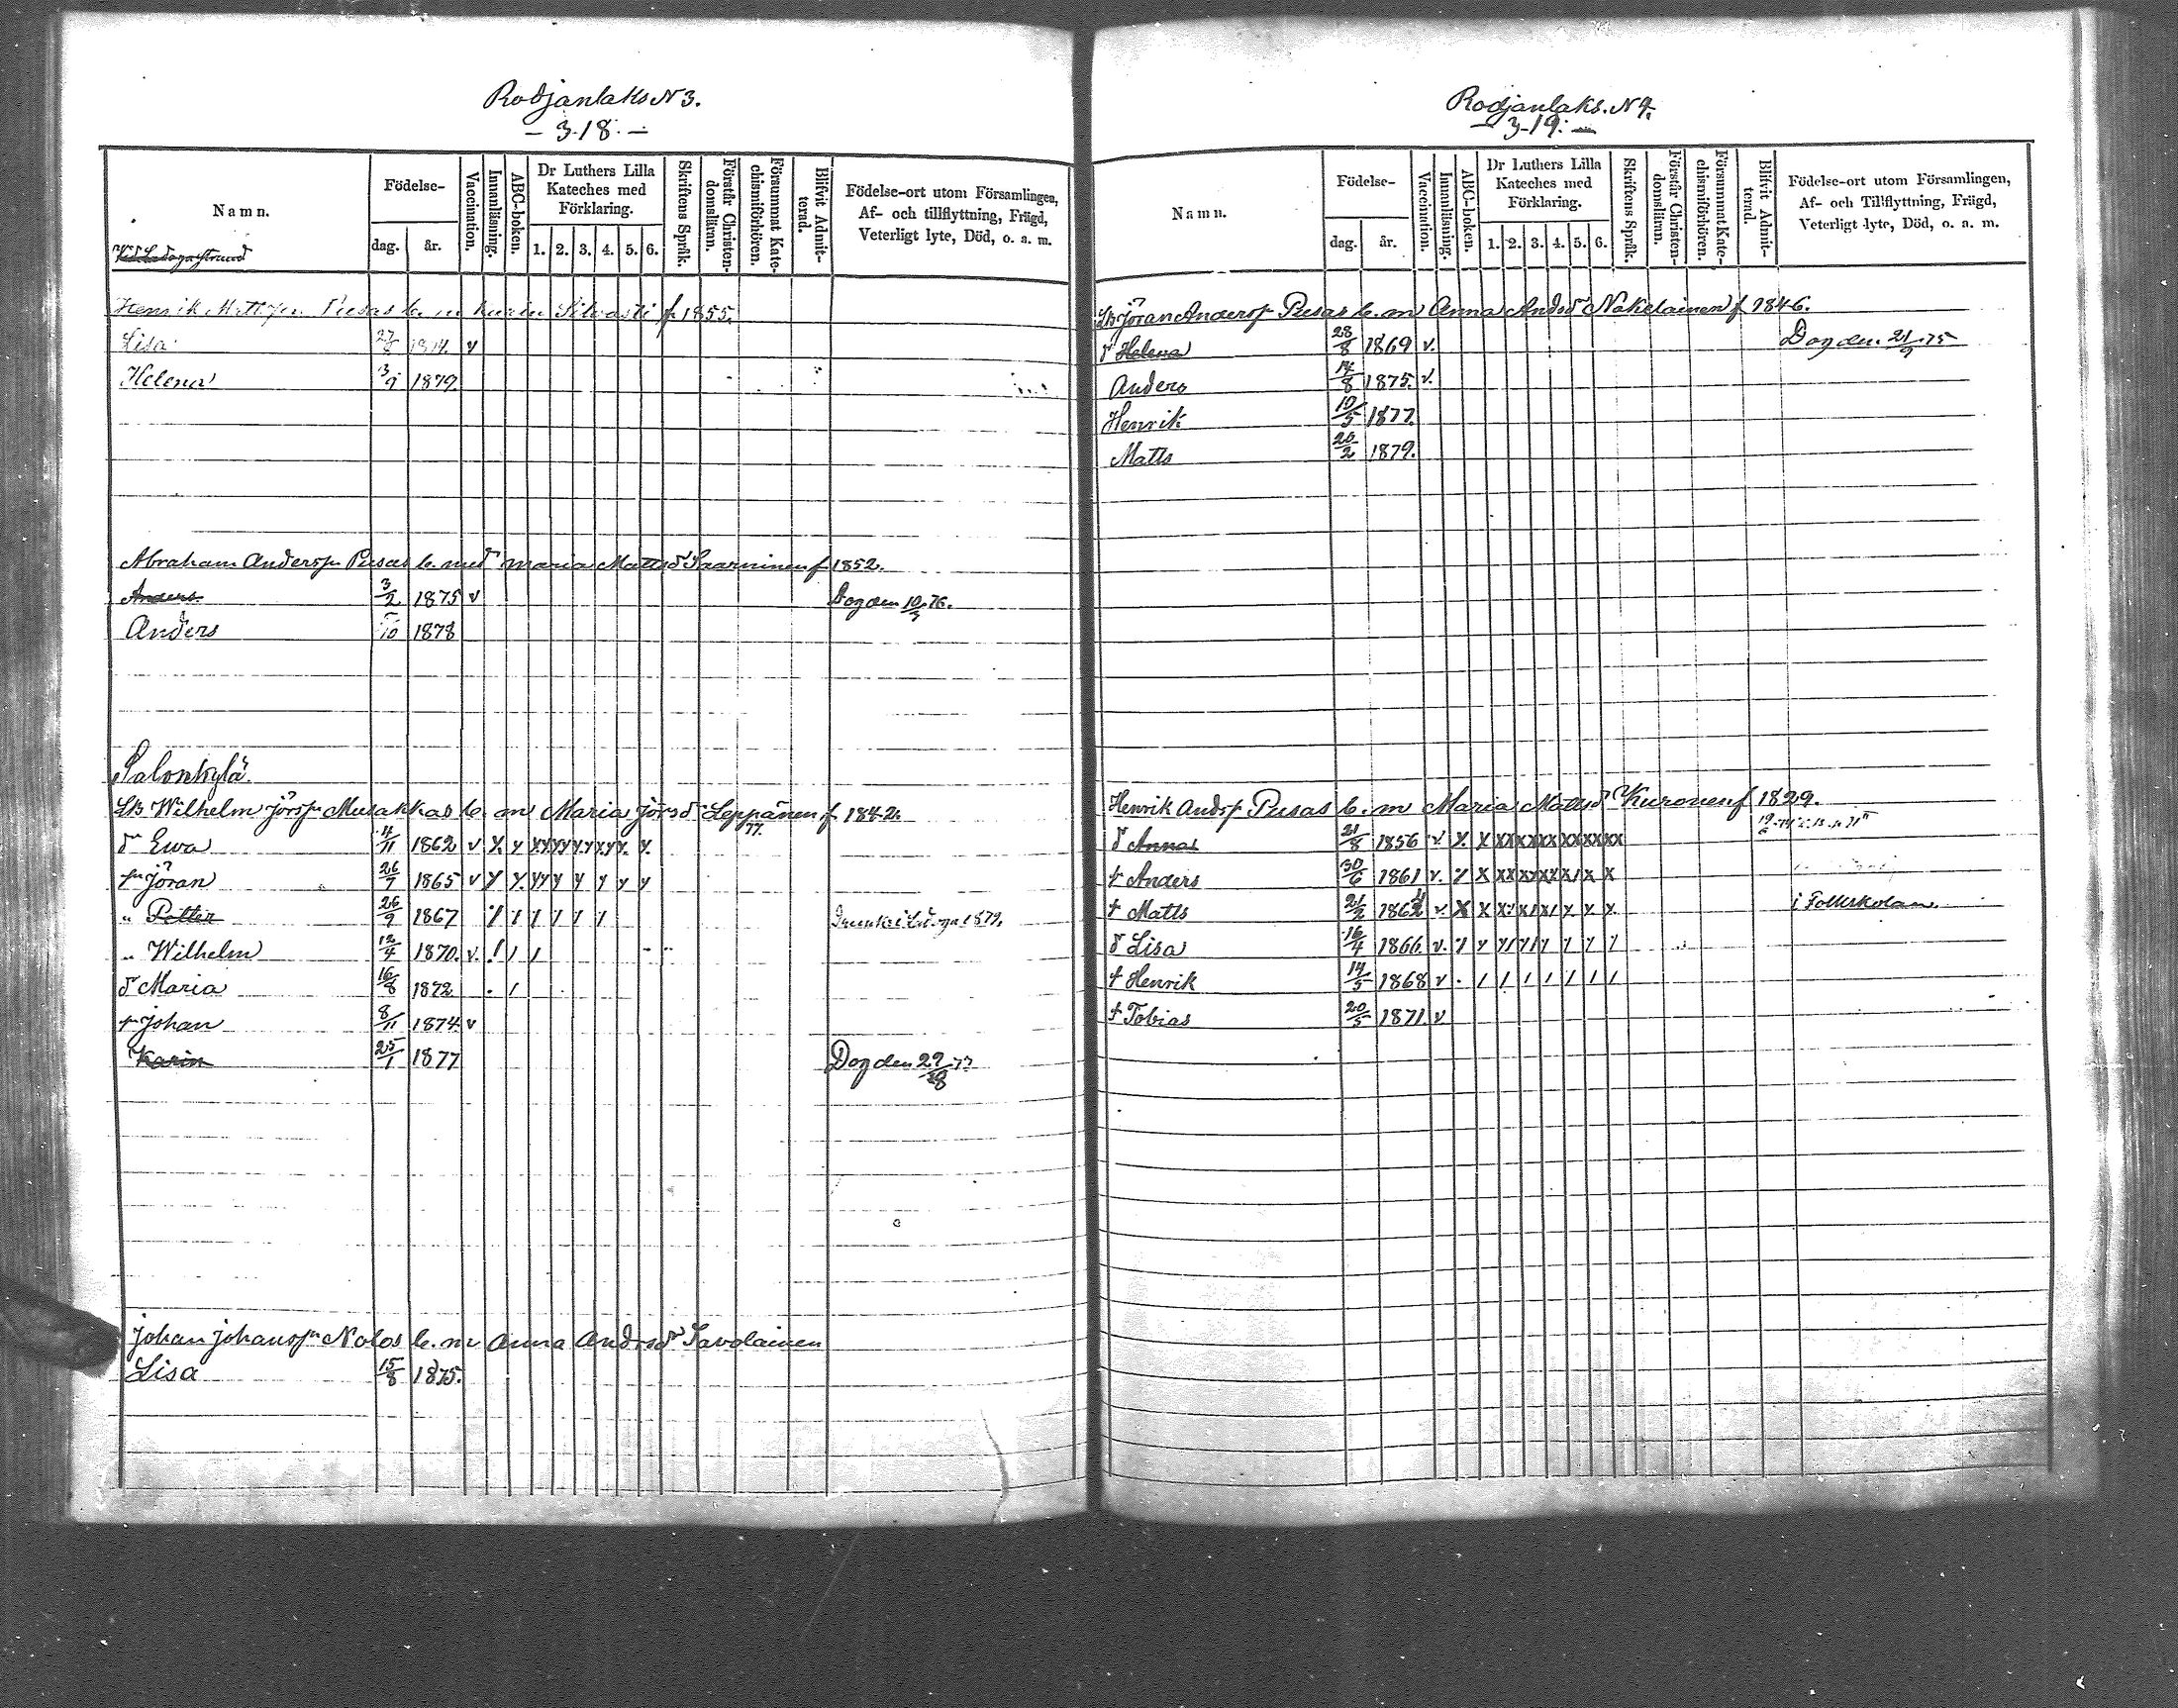 Rodjanlaks N 3.
— 318. —
Namn.
Födelse-
dag.
år.
Vaccination.
Innanläsning.
ABC-boken.
Dr Luthers Lilla Kateches med Förklaring.
1. 2. 3. 4. 5. 6.
Skriftens Språk.
Förstår Christendomsläran.
Försummat Katechismiförhören.
Blifvit Admitterad.
Födelse-ort utom Församlingen, Af- och tillflyttning, Frägd, Veterligt lyte, Död, o. a. m.
Henrik Pusas b. m Karin Silvasti f. 1855.
Lisa v
Helena 3/9 1879
Abraham Andersson Pusas b. med Maria Mattsd Saarninen f 1852.
Anders 3/2 1875 v Dog den 10/3 76.
Anders /10 1878
Salonkylä
Lb Wilhelm Jörss Musakkas b. m Maria Jörsd Leppänen f 1842.
77.
d Ewa 4/11 1862 v x y xy xy y.y xy y. y.
s Jöran 26/7 1865 v y y. yy y y y y y
" Petter 26/9 1867 / / / / / / 1879.
" Wilhelm 12/4 1870. v. / / /
d Maria 16/8 1872 . /
s Johan 8/11 1874 v
Karin 25/1 1877 Dog den 29/8 77
Johan Johanss Nolos b. m Anna Andersd Savolainen
Lisa 15/8 1875.
Rodjanlaks. N 4.
— 319. —
Namn.
Födelse-
dag.
år.
Vaccination.
Innanläsning.
ABC-boken.
Dr Luthers Lilla Kateches med Förklaring.
1. 2. 3. 4. 5. 6.
Skriftens Språk.
Förstår Christendomsläran.
Försummat Katechismiförhören.
Blifvit Admitterad.
Födelse-ort utom Församlingen, Af- och Tillflyttning, Frägd, Veterligt lyte, Död, o. a. m.
Lb Jöran Anderss Pusas b. m Anna Andsd Nokelainen f 1846.
d Helena 28/8 1869 v. Dog den 21/9 75
Anders 14/8 1875. v.
Henrik 10/5 1877.
Matts 20/2 1879.
Henrik Andss Pusas b. m Maria Mattsd Kuronen f 1829.
d Anna 21/8 1856 v. y. x xx xx xx xx xx xx
s Anders 30/6 1861 v. y x xx xx xx x/ x x
s Matts 21/2 186 v. x x x/ x/ x/ y. y. y.
i Folkskolan
d Lisa 16/4 1866. v. / y y/ y/ y y y y
s Henrik 14/5 1868 v . / / / / / / /
s Tobias 20/5 1871. v